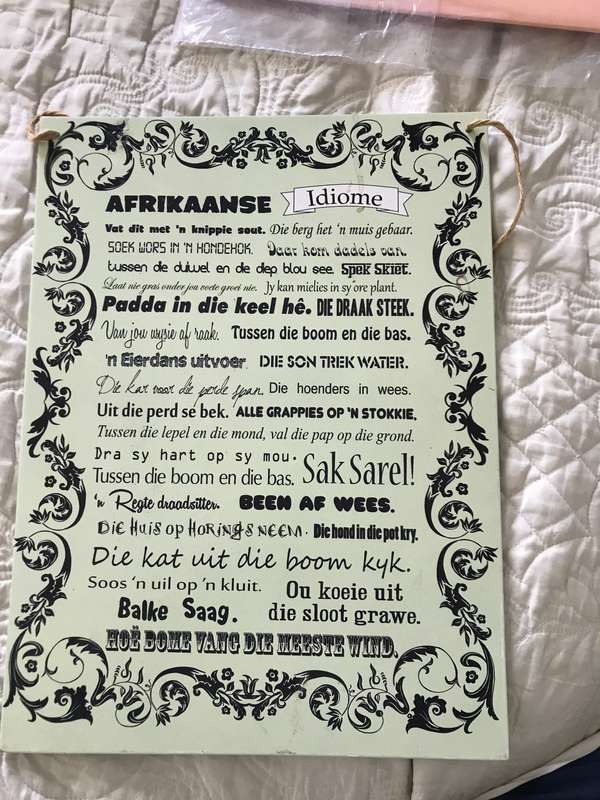 AFRIKAANSE Idiome
Vat dit met 'n knippie sout. Die berg het 'n muis gebaar.
SOEK WORS IN 'N HONDEHOK. Daar kom dadels van.
tussen die duiwel en die diep blou see. Spek Skiet.
Laat nie gras onder jou voete groei nie. Jy kan mielies in sy ore plant.
Padda in die keel hê. DIE DRAAK STEEK.
Van jou wysie af raak. Tussen die boom en die bas.
'n Eierdans uitvoer DIE SON TREK WATER.
Die kar voor die perde span. Die hoenders in wees.
Uit die perd sé bek. ALLE GRAPPIES OP 'N STOKKIE.
Tussen die lepel en die mond, val die pap op die grond.
Dra sy hart op sy mou.
Tussen die boom en die bas. Sak Sarel!
'n Regte draadsitter. BEEN AF WEES.
Die Huis op Horings neem. Die hond in die pot kry.
Die kat uit die boom kyk.
Soos 'n uil op 'n kluit. Ou koeie uit
Balke Saag. die sloot grawe.
HOË BOME VANG DIE MEESTE WIND.